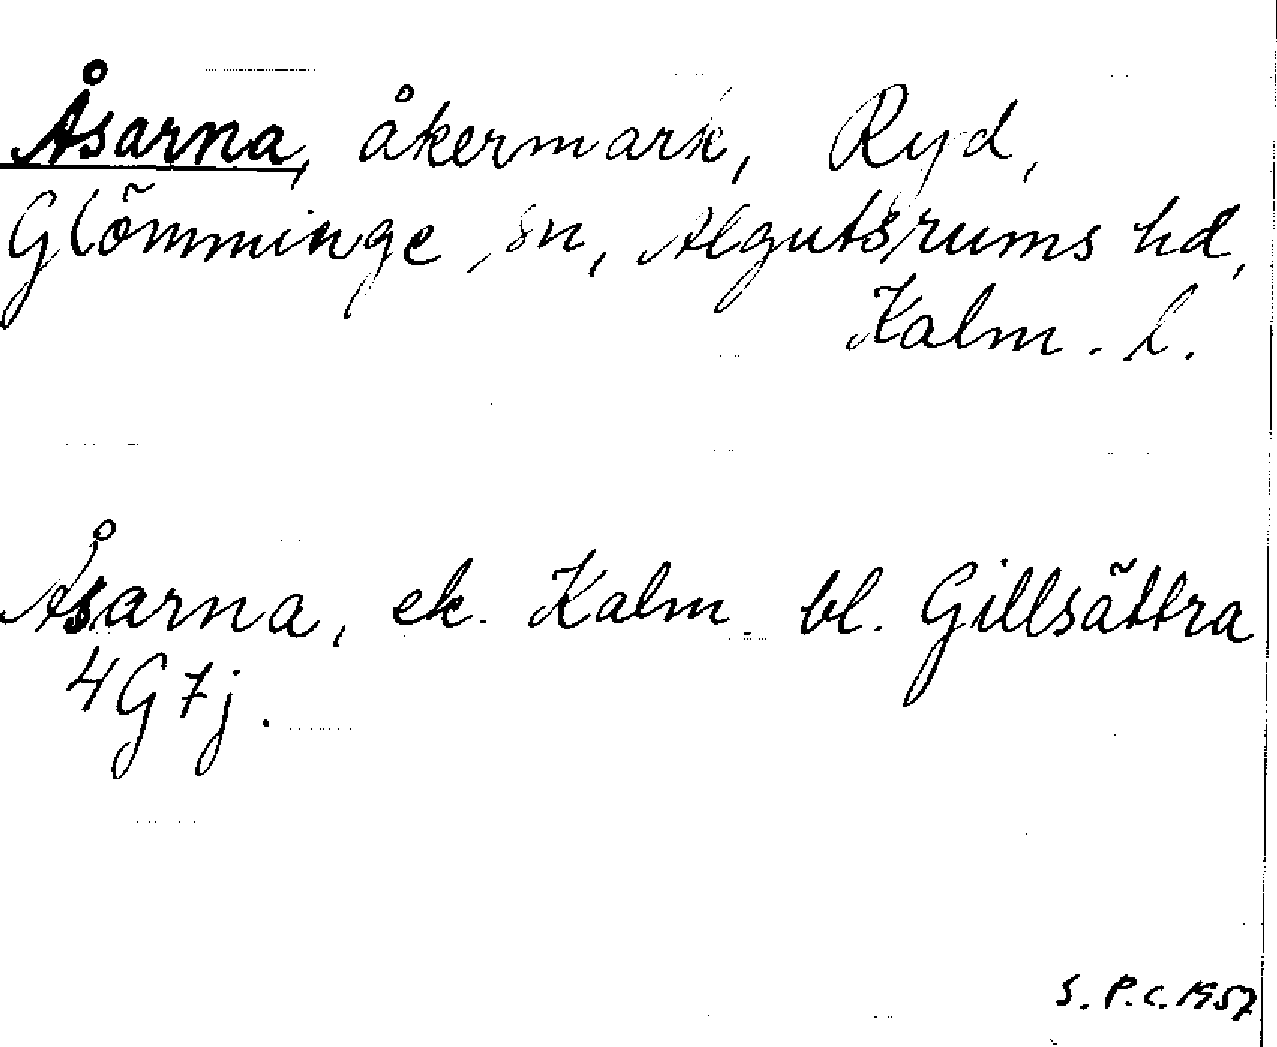 Åsarna, åkermark, Ryd,
Glömminge sn, Algutsrums hd,
Kalm. l.
Åsarna, ek. Kalm. bl. Gillsättra
4G7j.
S.P.C. 1957